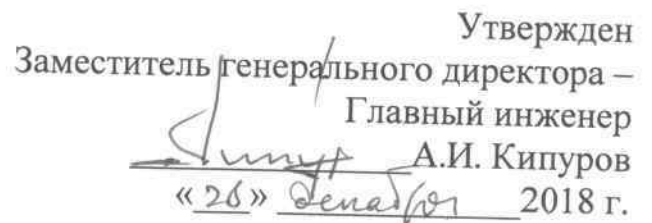 Утвержден
Заместитель генерального директора –
Главный инженер
А.И. Кипуров
«26» декабря 2018 г.